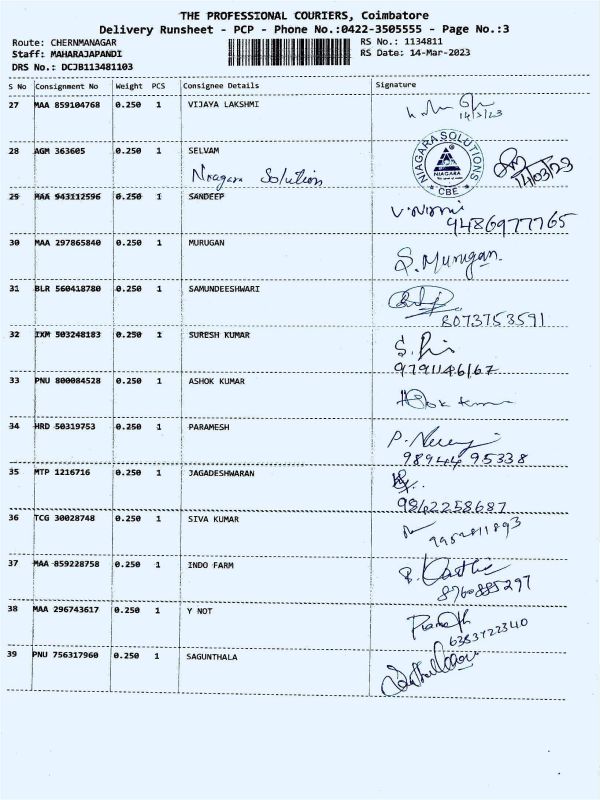 THE PROFESSIONAL COURIERS, Coimbatore
Delivery Runsheet - PCP - Phone No.:0422-3505555 - Page No.:3
Route: CHERNMANAGAR RS No.: 1134811
Staff: MAHARAJAPANDI RS Date: 14-Mar-2023
DRS No.: DCJB113481103
S No Consignment No Weight PCS Consignee Details Signature
27 MAA 859104768 0.250 1 VIJAYA LAKSHMI
14/3/23
28 AGM 363605 0.250 1 SELVAM
Niagara Solution
NIAGARA SOLUTIONS
NIAGARA
CBE
14/03/23
29 MAA 943112596 0.250 1 SANDEEP
9486977765
30 MAA 297865840 0.250 1 MURUGAN
S. Murugan.
31 BLR 560418780 0.250 1 SAMUNDEESHWARI
8073753591
32 IXM 503248183 0.250 1 SURESH KUMAR
9791146167
33 PNU 800084528 0.250 1 ASHOK KUMAR
Ashok kumar
34 HRD 50319753 0.250 1 PARAMESH
98944 95338
35 MTP 1216716 0.250 1 JAGADESHWARAN
9862258687
36 TCG 30028748 0.250 1 SIVA KUMAR
37 MAA 859228758 0.250 1 INDO FARM
8760885297
38 MAA 296743617 0.250 1 Y NOT
6383722340
39 PNU 756317960 0.250 1 SAGUNTHALA